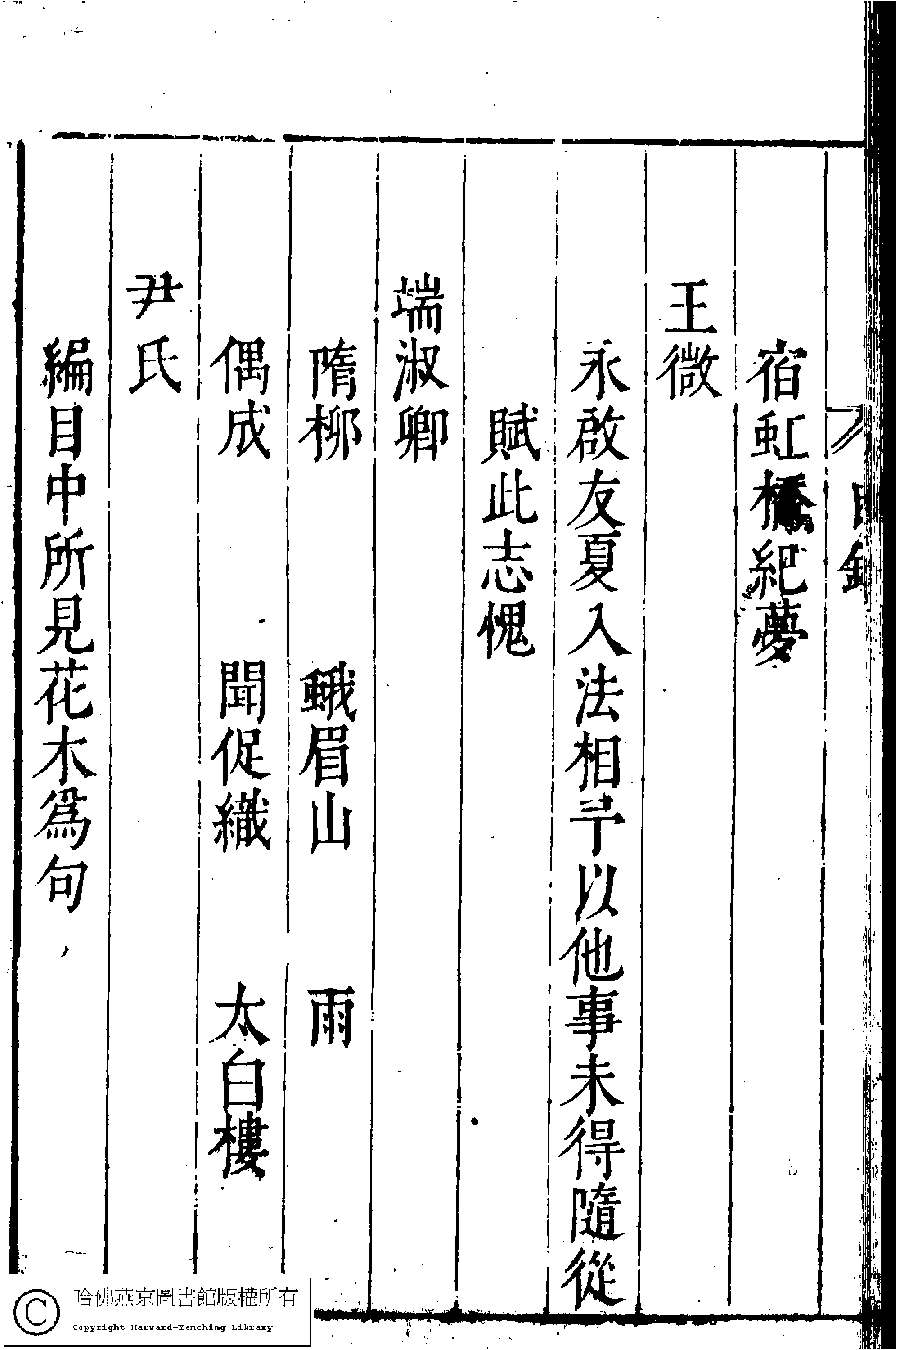 目錄
宿虹橋紀夢
王微
永啟友夏入法相予以他事未得隨從
賦此志愧
端淑卿
隋柳 蛾眉山 雨
偶成 聞促織 太白樓
尹氏
編目中所見花木爲句
哈佛燕京圖書館版權所有
Copyright Harvard-Yenching Library